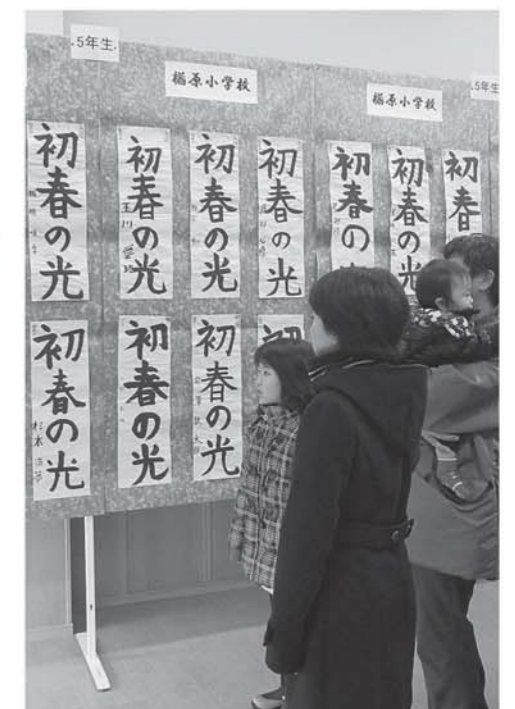 5年生
楢原小学校
楢原小学校
5年生
初春の光
初春の光
初春の光
初春の光
初春の
初春の光
初春
初春の光
初春の光
初春の光
初
杉本